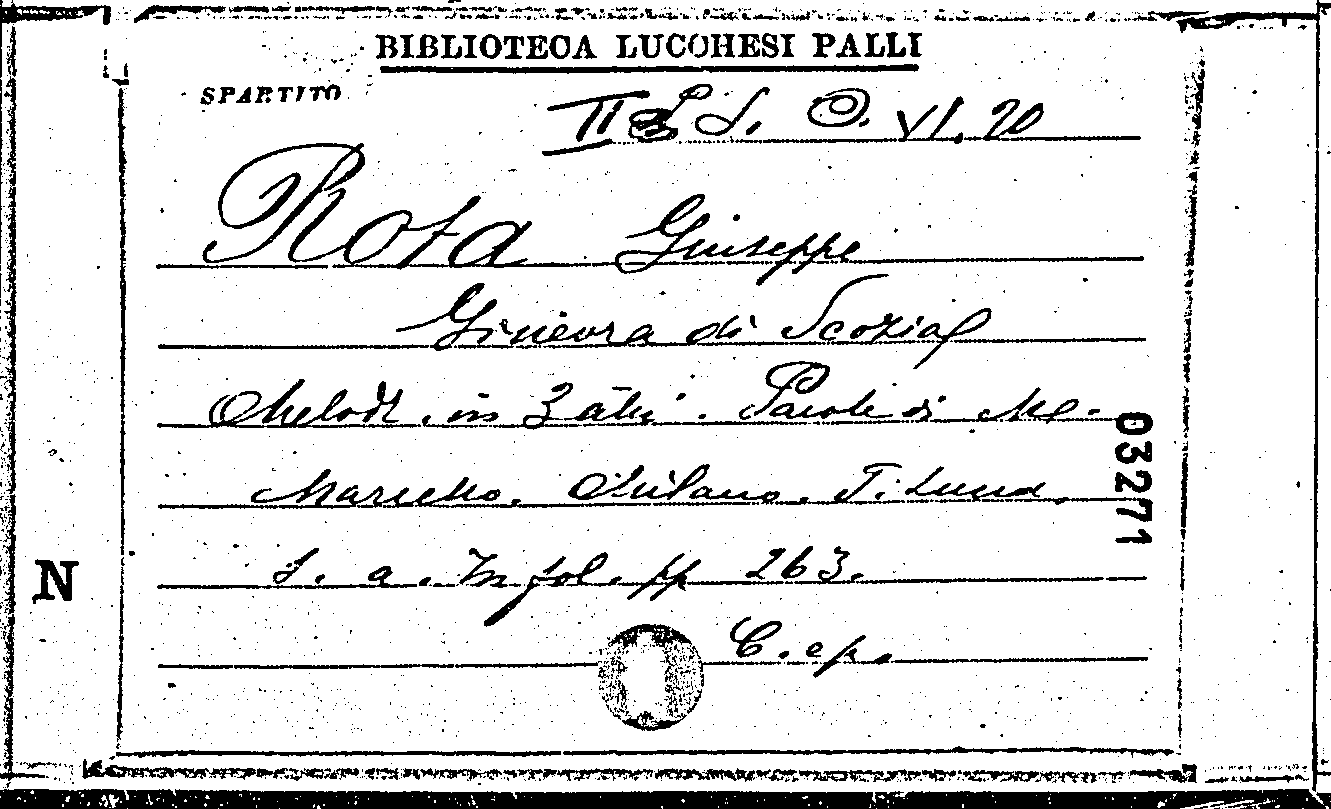 BIBLIOTECA LUCCHESI PALLI
SPARTITO
II S. O. VI. 20
Rota Giuseppe
Ginevra di Scozia
Melodr. in 3 atti. Parole di M.
Marcello. Milano. F. Lucca.
s. a. In fol. pp 263.
C. ep.
03271
N